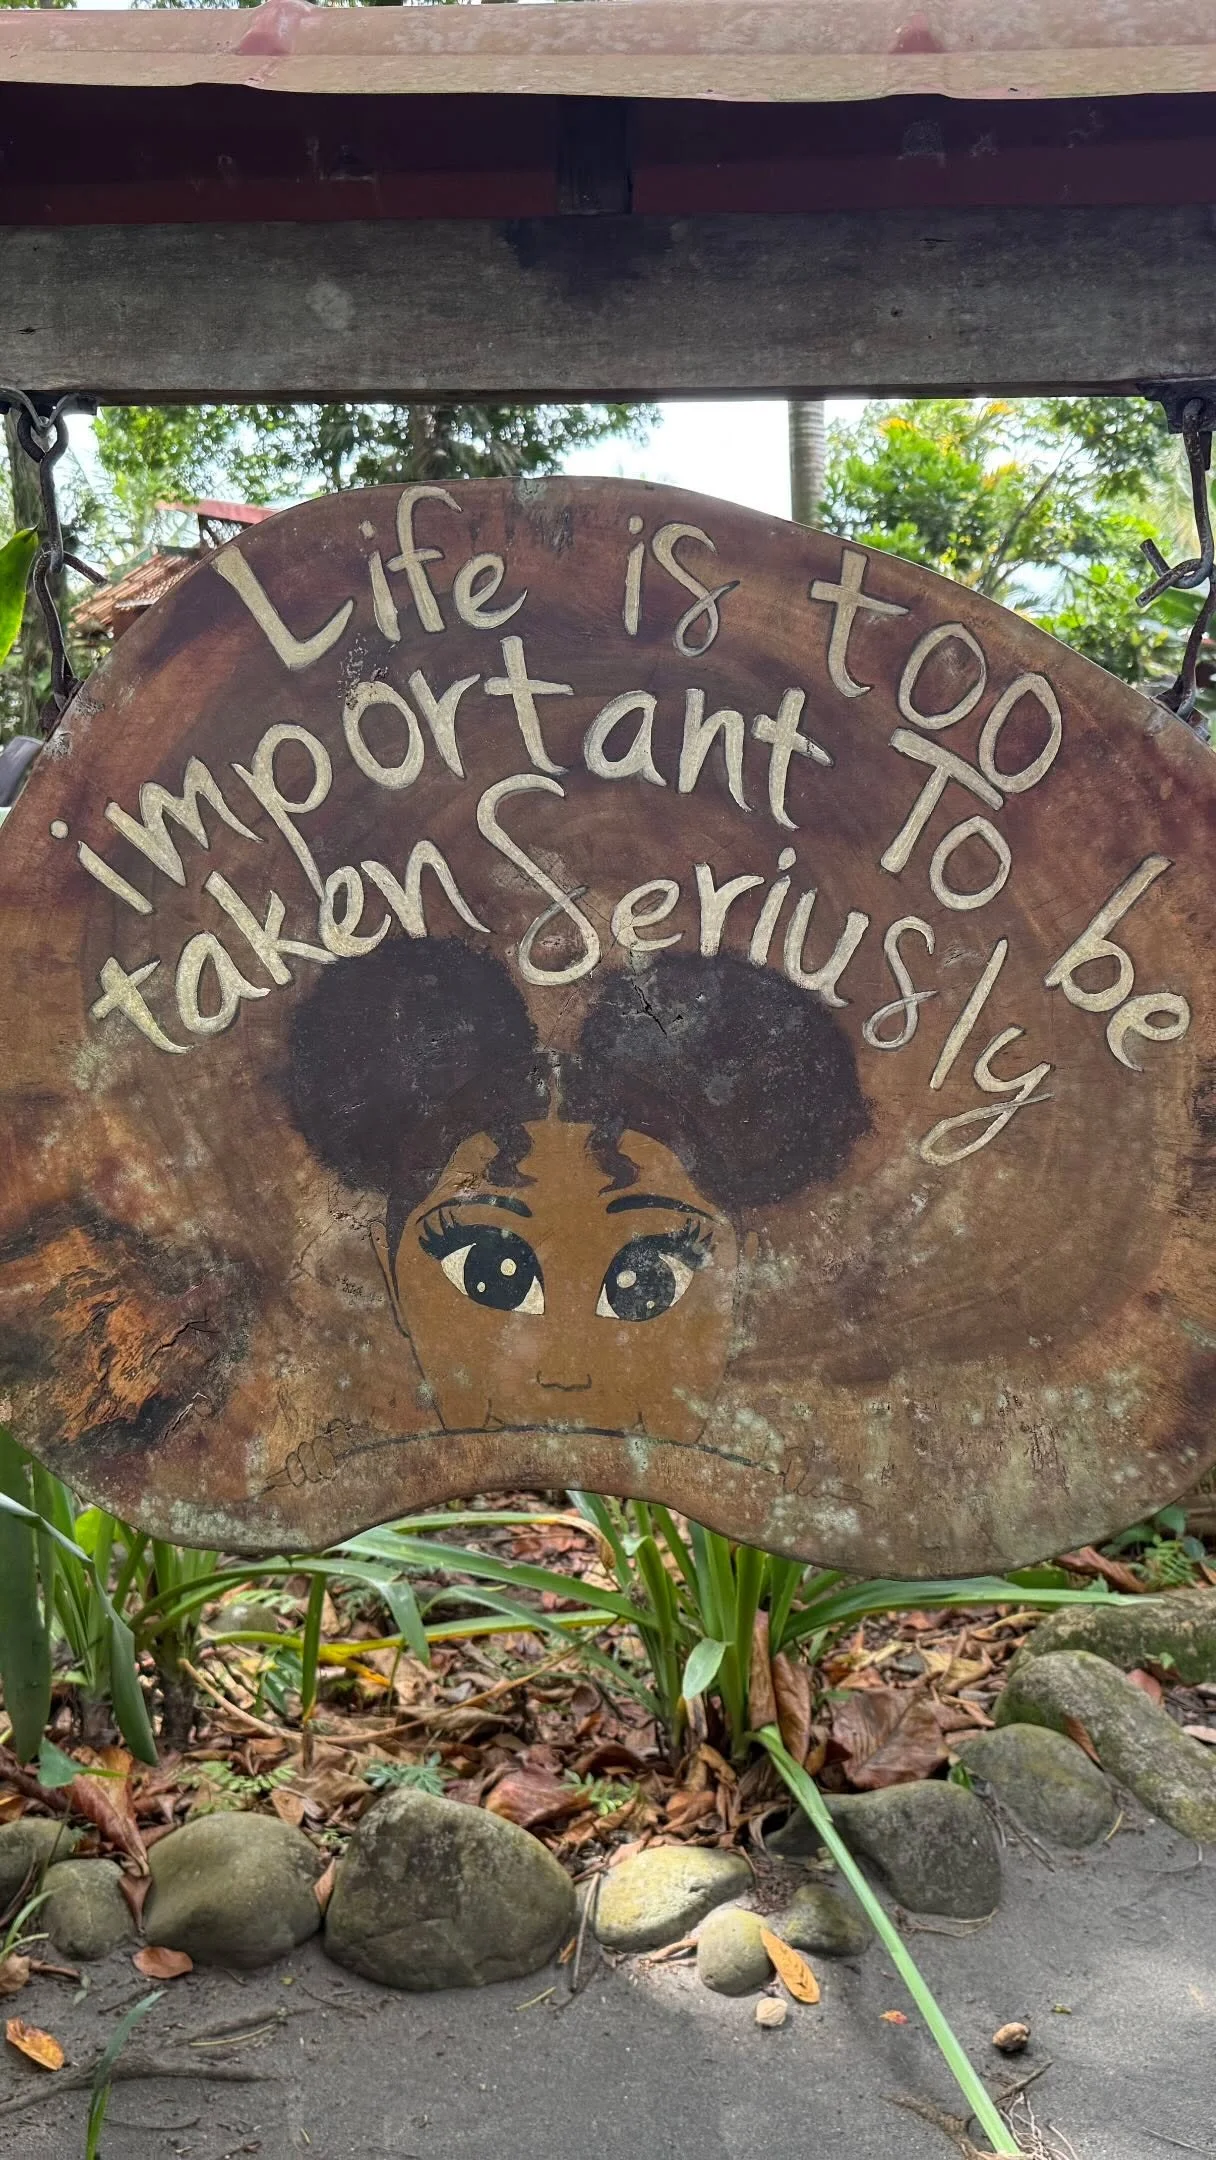 Life is too
important To be
taken Seriusly